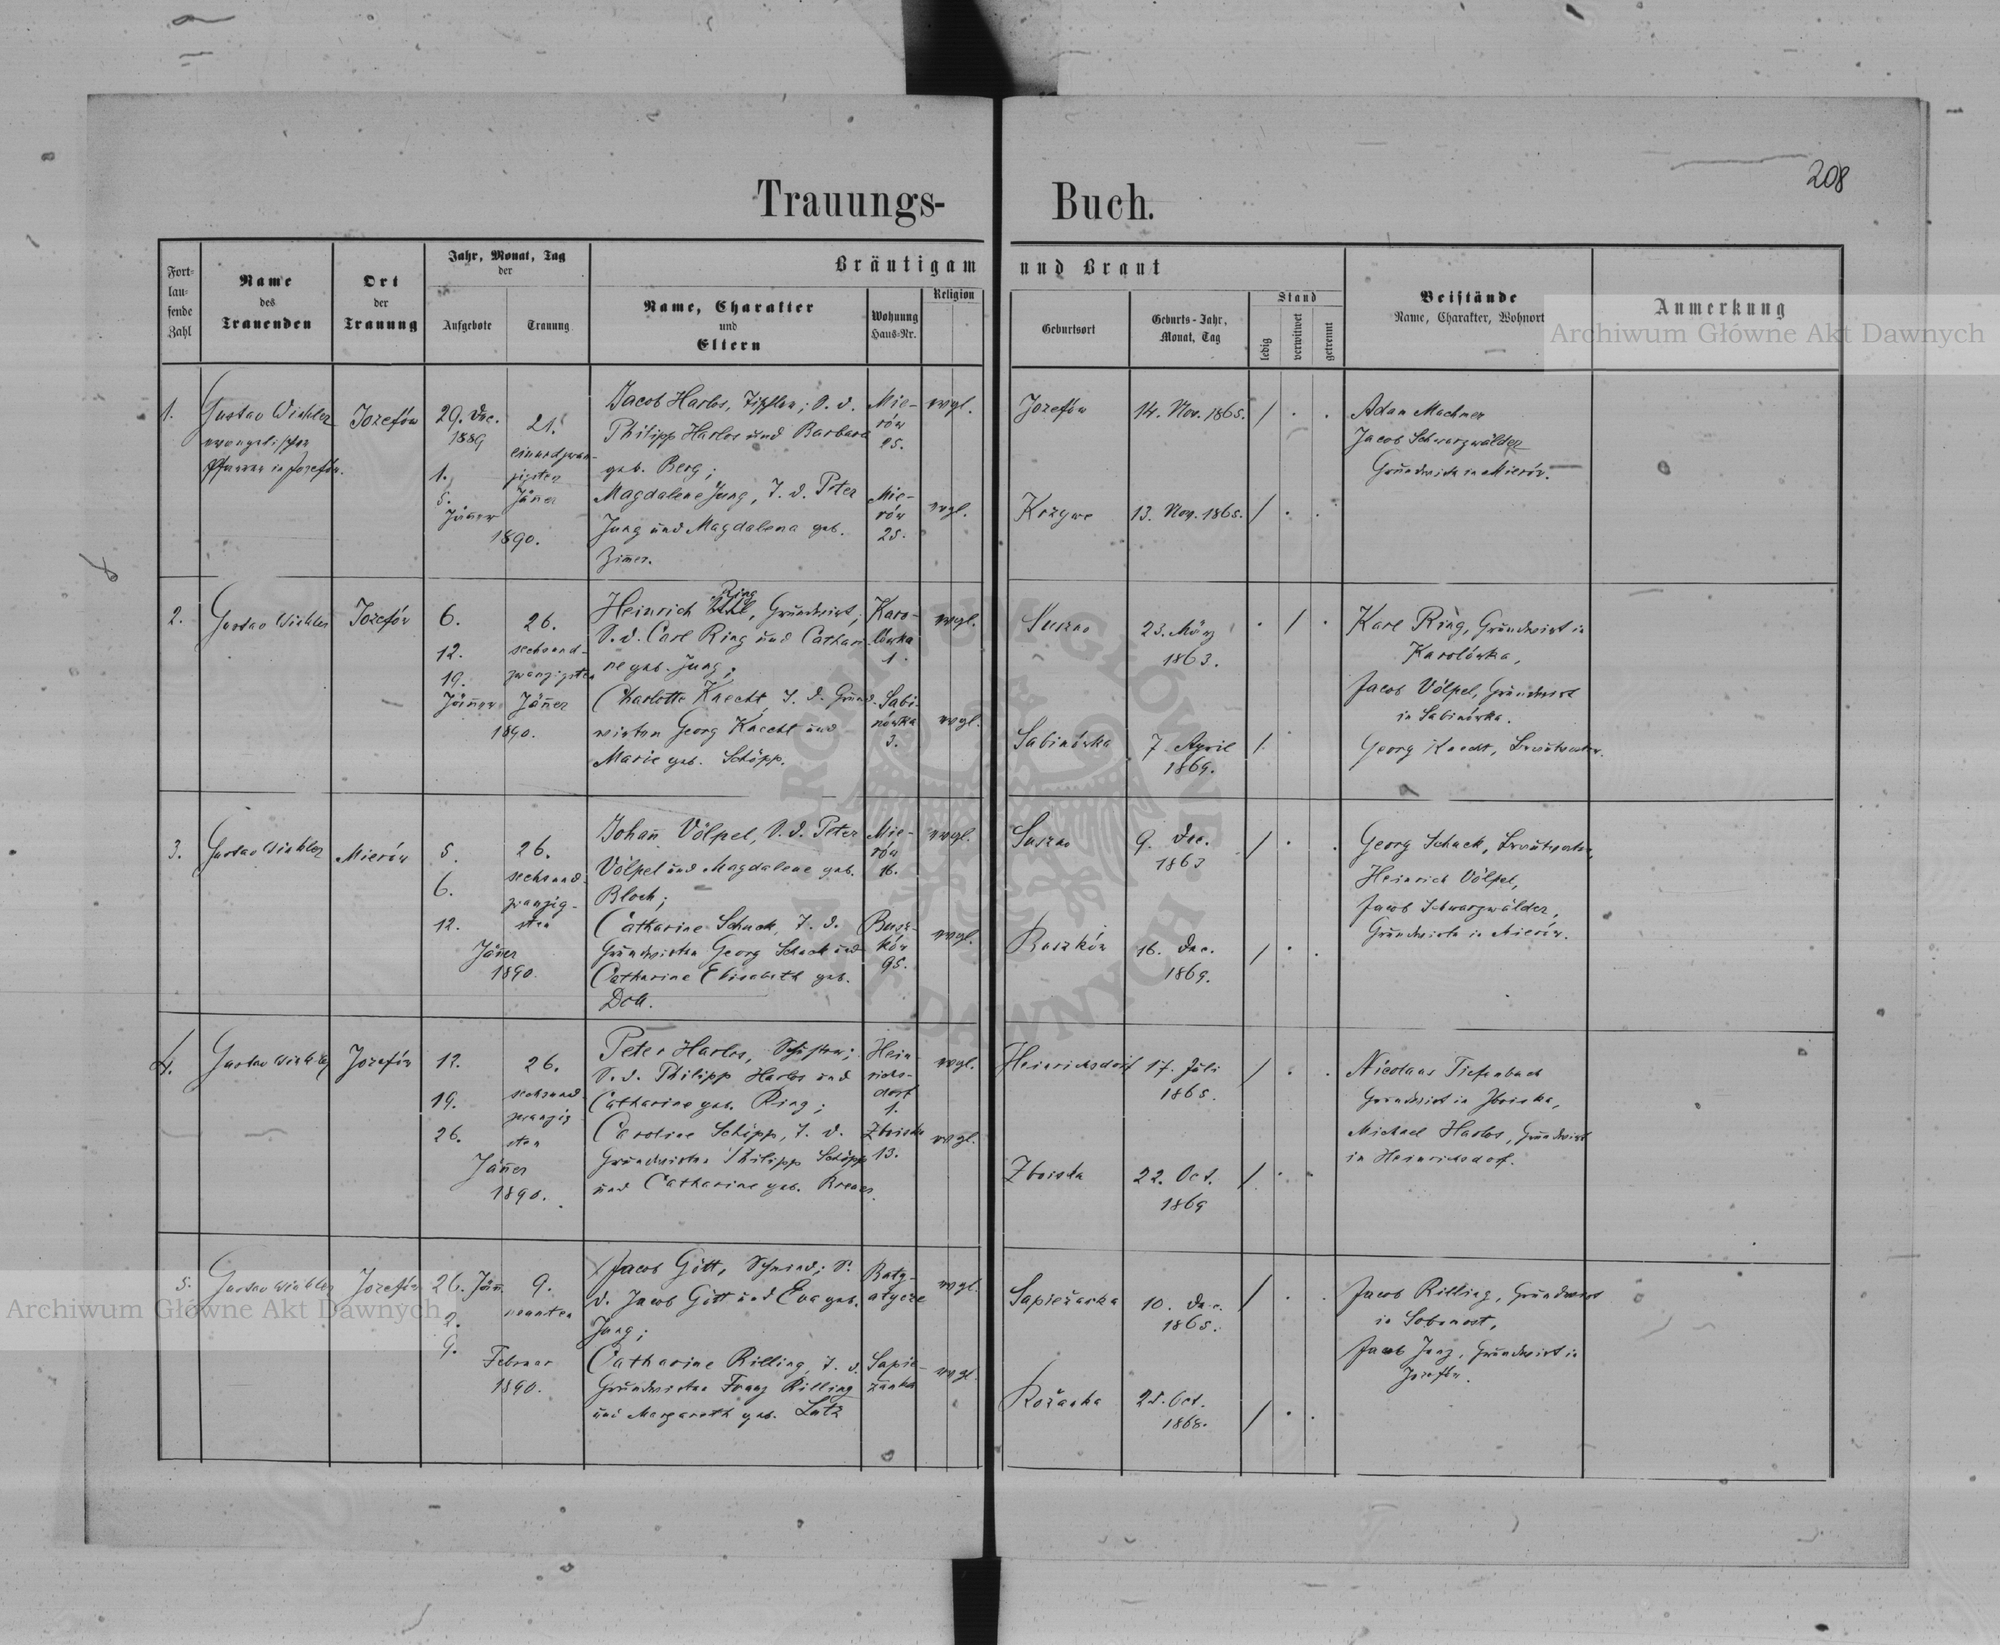 208
Trauungs- Buch.
Fort-
lau-
fende
Zahl
Name
des
Trauenden
Ort
der
Trauung
Jahr, Monat, Tag
der
Aufgebote
Trauung
Bräutigam und Braut
Name, Charakter
und
Eltern
Wohnung
Haus-Nr.
Religion
Geburtsort
Geburts-Jahr,
Monat, Tag
Stand
ledig
verwitwet
getrennt
Beistände
Name, Charakter, Wohnort
Anmerkung
Archiwum Główne Akt Dawnych
1.
Gustav Winkler
evangelischer
Pfarrer in Josefów.
Jozefów
29. Dec.
1889
1.
5.
Jänner
21.
einundzwan-
zigsten
Jäner
1890.
Jacob Harlos, S. d.
Philipp Harlos und Barbara
geb. Berg;
Magdalene Jung, T. d. Peter
Jung und Magdalena geb.
Zimer.
Mie-
rów
25.
Mie-
rów
25.
evgl.
evgl.
Jozefów
14. Nov. 1865.
Krzywe
13. Nov. 1865.
Adam Machner
Jacob Schwarzwälder
Grundwirte in Mierów.
2.
Gustav Winkler
Jozefów
6.
12.
19.
Jänner
26.
sechsund-
zwanzigsten
Jäner
1890.
Heinrich Ring, Grundwirt,
S. d. Carl Ring und Cathari-
ne geb. Jung;
Charlotte Knecht, T. d. Grund-
wirten Georg Knecht und
Marie geb. Schöpp.
Karo-
lówka
1.
Sabi-
nówka
3.
evgl.
evgl.
Suszno
23. März
1863.
Sabinówka
7. April
1869.
Karl Ring, Grundwirt in
Karolówka,
Jacob Völpel, Grundwirt
in Sabinówka.
Georg Knecht, Brautvater.
3.
Gustav Winkler
Mierów
5.
6.
12.
Jäner
1890.
26.
sechsund-
zwanzig-
sten
Johañ Völpel, S. d. Peter
Völpel und Magdalene geb.
Bloch;
Catharine Schuck, T. d.
Grundwirten Georg Schuck und
Catharine Elisabeth geb.
Doll.
Mie-
rów
16.
Busz-
ków
95.
evgl.
evgl.
Suszno
9. Dec.
1863
Buszków
16. Dec.
1869.
Georg Schuck, Brautvater,
Heinrich Völpel,
Jacob Schwarzwälder,
Grundwirte in Mierów.
4.
Gustav Winkler
Jozefów
12.
19.
26.
Jäner
1890.
26.
sechsund-
zwanzig
sten
Peter Harlos,
S. d. Philipp Harlos und
Catharine geb. Ring;
Caroline Schöpp, T. d.
Grundwirten Philipp Schöpp
und Catharine geb.
Hein-
richs-
dorf
1.
Zboiska
13.
evgl.
evgl.
Heinrichsdorf
17. Juli
1865.
Zboiska
22. Oct.
1869
Nicolaus Tiefenbach
Grundwirt in Zboiska,
Michael Harlos, Grundwirt
in Heinrichsdorf.
5.
Gustav Winkler
Jozefów
26. Jän.
2.
9.
Februar
1890.
9.
neunten
Jacob Gött, Schmied; S.
d. Jacob Gött und Eva geb.
Jung;
Catharine Rilling, T. d.
Grundwirten Franz Rilling
und Margareth geb. Lutz
Batg-
atycze
Sapie-
żanka
evgl.
evgl.
Sapieżanka
10. Dec.
1865.
Rożanka
25. Oct.
1868.
Jacob Rilling, Grundwirt
in
Jacob Jung, Grundwirt in
Josefów.
Archiwum Główne Akt Dawnych
ARCHIWUM GŁÓWNE AKT DAWNYCH